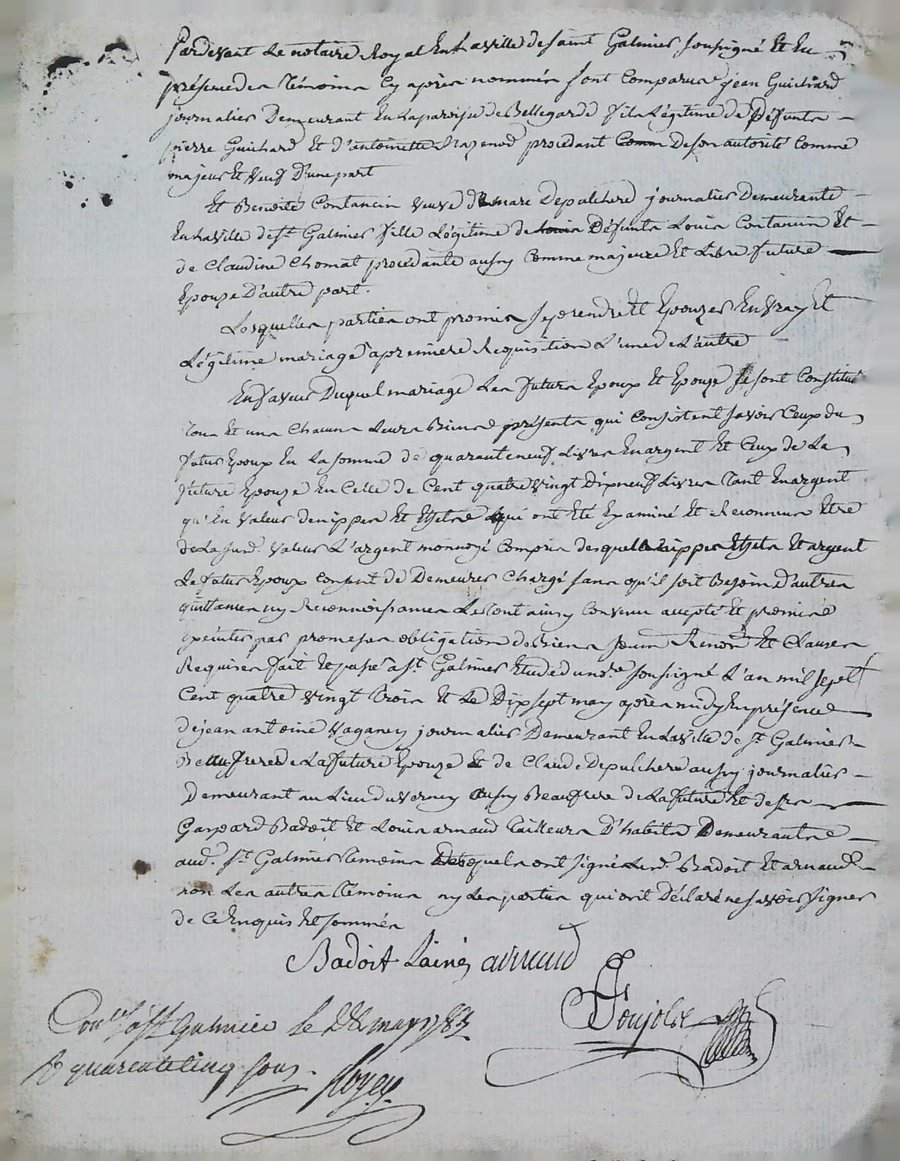 Pardevant Le notaire Royal En Laville de saint Galmier soussigné Et En
présence des Témoins Cy après nommés sont comparus jean Guichard
journalier Demeurant En Laparoisse de Bellegarde fils Légitime de Défunts
pierre Guichard Et d'antoinette procédant Comm De son autorité Comme
majeur Et veuf D'une part
Et Benoite Contancin veuve de marc Depulchere journalier Demeurante
En Laville de st. Galmier fille Légitime de Louis Défunts Louis Contancin Et
de Claudine Chomat procédante aussy Comme majeure Et Libre future
Epouze D'autre part.
Lesquelles parties ont promis se prendre Et Epouzer En vray Et
Légitime mariage a première Requisition L'une de L'autre
En faveur Duquel mariage Les futurs Epoux Et Epouze se sont Constitué
Tous Et uns Chacuns Leurs Biens présents qui Consistent savoir Ceux du
futur Epoux En La somme de quaranteneuf Livres En argent Et Ceux de La
future Epouze En Celle de Cent quatre vingt Dixneuf Livres Tant En argent
qu'En valeur de nippes Et Effets qui ont Eté Examiné Et Reconnus Etre
de La susd. valeur L'argent monnoyé Compris desquels nippes Effets Et argent
Le futur Epoux consent de Demeurer Chargé sans qu'il soit Besoin d'autres
quittances ny Reconnoissances Le tout ainsy Convenu accepté Et promis
par promesses obligation de Biens soum. Renon. Et Clauses
Requises fait Et passé a st. Galmier Etude du nre. soussigné L'an mil sept
Cent quatre vingt Trois Et Le Dix sept may après midy En présence
de jean antoine vaganay journalier Demeurant En Laville de st. Galmier
Beaufrere de La future Epouze Et de Claude Depulchere aussy journalier
Demeurant au Lieu du vernay aussy Beaufrere de La future Et de srs
Gaspard Badoit Et Louis arnaud Tailleurs D'habits Demeurants
aud. st. Galmier Témoins Desquels ont signé Lesd. Badoit Et arnaud
non Les autres Témoins ny Les parties qui ont Déclaré ne savoir signer
de Ce Enquis Et sommés
Badoit Lainé arnaud
Conlé a st Galmier le may 1783
R quarante cinq sous.